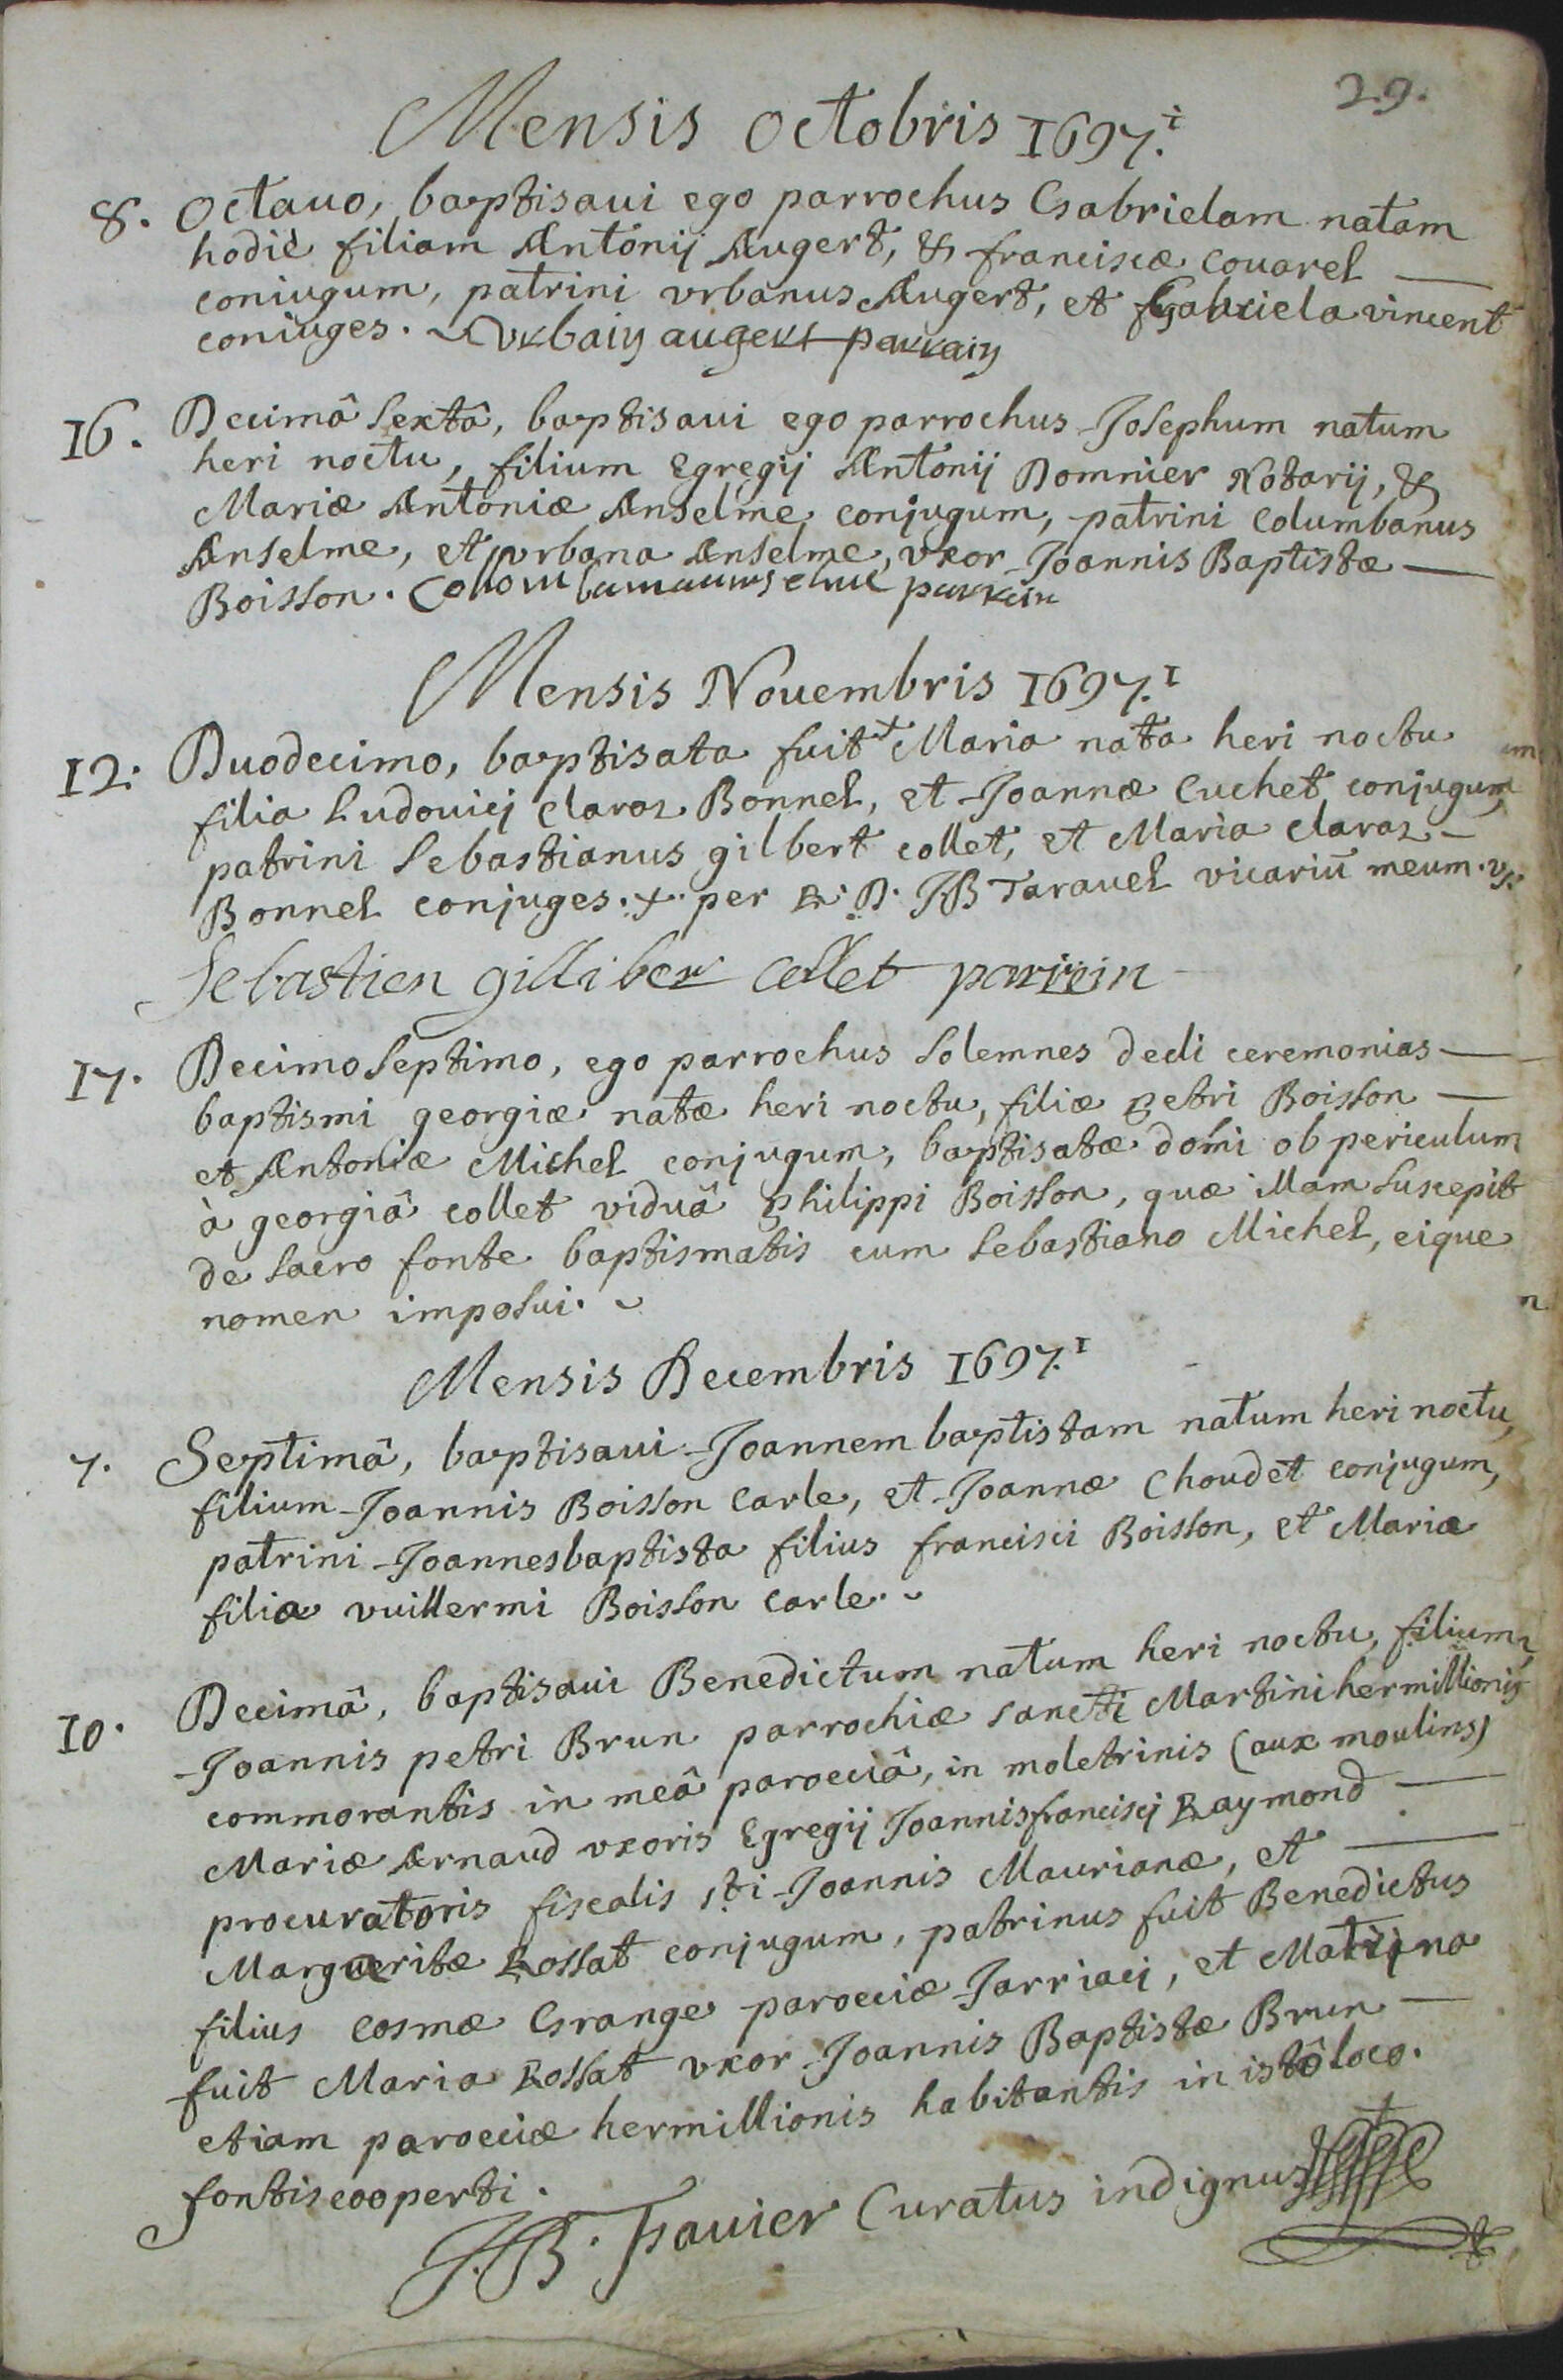 29.
Mensis octobris 1697.i
8. Octauo, baptisaui ego parrochus Gabrielam natam
hodie filiam Antonij Augert, & franciscæ couarel
coniugum, patrini vrbanus Augert, et Gabriela vincent
coniuges. vrbain augert parrain
16. Decimâ sextâ, baptisaui ego parrochus Josephum natum
heri noctu, filium Egregij Antonij Domnier Notarij, &
Mariæ Antoniæ Anselme conjugum, patrini Columbanus
Anselme, et vrbana Anselme, vxor Joannis Baptistæ
Boisson. parrin
Mensis Nouembris 1697.I
12. Duodecimo, baptisata fuit + Maria nata heri noctu
filia Ludouicj claraz Bonnel, et Joannæ Cuchet conjugum,
patrini Sebastianus gilbert collet, et Maria claraz
Bonnel conjuges. + per R. D. JB Tarauel vicariū meum.
Sebastien gilliber collet parrein
17. Decimo septimo, ego parrochus solemnes dedi ceremonias
baptismi georgiæ natæ heri noctu, filiæ petri Boisson
et Antoniæ Michel conjugum, baptisatæ domi ob periculum
à georgiâ collet viduâ philippi Boisson, quæ illam suscepit
de sacro fonte baptismatis cum Sebastiano Michel, eique
nomen imposui.
Mensis Decembris 1697.I
7. Septimâ, baptisaui Joannem baptistam natum heri noctu,
filium Joannis Boisson Carle, et Joannæ Choudet conjugum,
patrini Joannesbaptista filius francisci Boisson, et Maria
filia vuillermi Boisson Carle.
10. Decimâ, baptisaui Benedictum natum heri noctu, filium
Joannis petri Brun parrochiæ sancti Martini hermillionis
commorantis in meâ paroeciâ, in moletrinis (aux moulins)
Mariæ Arnaud vxoris Egregij Joannisfranciscj Raymond
procuratoris fiscalis sti Joannis Maurianæ, et
Margueritæ Rossat conjugum, patrinus fuit Benedictus
filius Cosmæ Grange paroeciæ Jarriaci, et Matrina
fuit Maria Rossat vxor Joannis Baptistæ Brun
etiam paroeciæ hermillionis habitantis in istô loco.
fontiscooperti.
J.B. Favier Curatus indignus